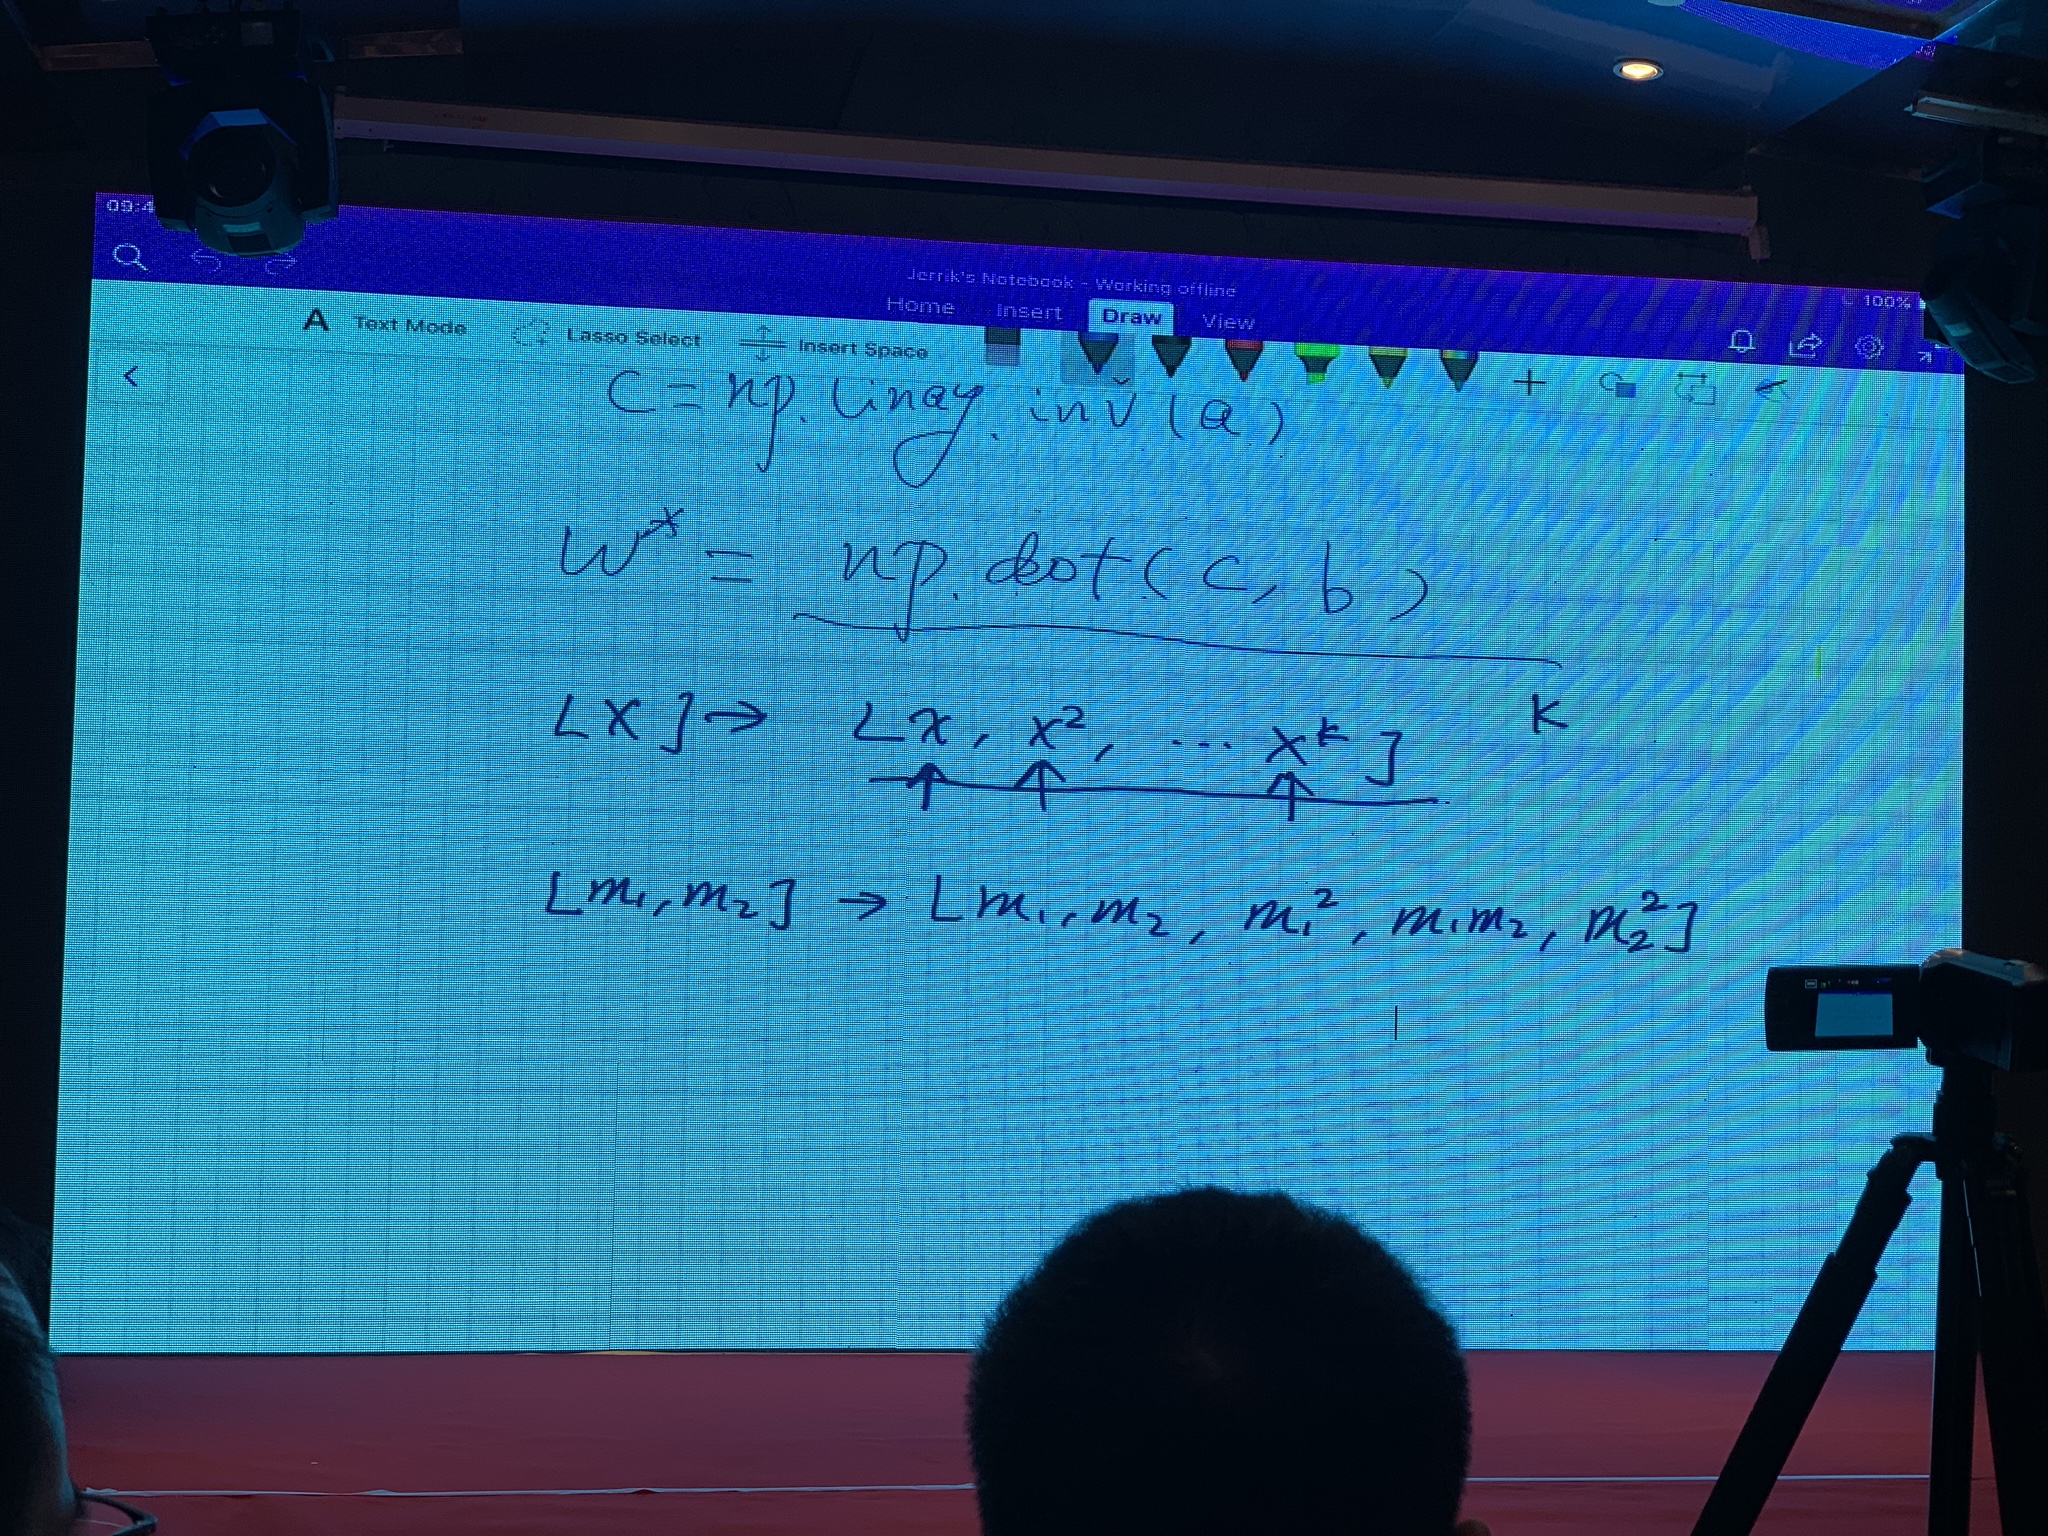 09:4
Jerrik's Notebook - Working offline
100%
Home Insert Draw View
A Text Mode Lasso Select Insert Space
C = np. linag. inv (a)
W* = np. dot ( c, b )
[X] → [x, x², ... xᵏ] K
[m₁, m₂] → [m₁, m₂, m₁², m₁m₂, m₂²]